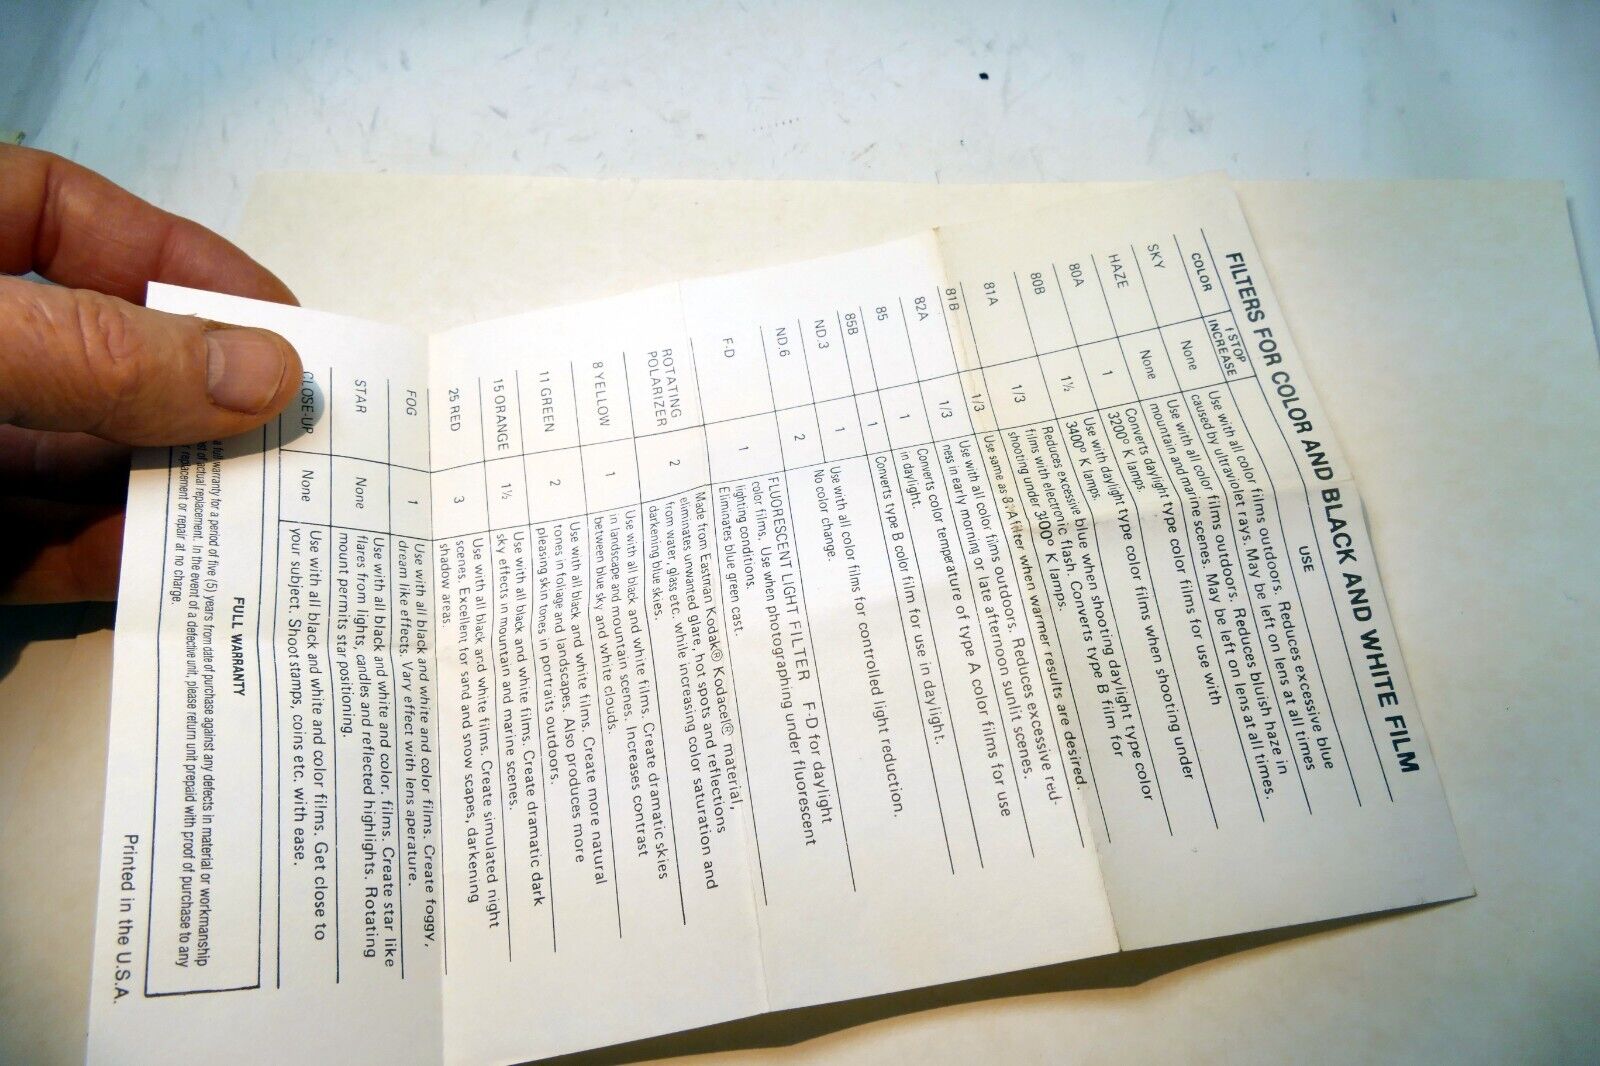 FILTERS FOR COLOR AND BLACK AND WHITE FILM
COLOR f STOP INCREASE USE
SKY None Use with all color films outdoors. Reduces excessive blue
caused by ultraviolet rays. May be left on lens at all times
HAZE None Use with all color films outdoors. Reduces bluish haze in
mountain and marine scenes. May be left on lens at all times.
80A 1 Converts daylight type color films for use with
3200° K lamps.
80B 1½ Use with daylight type color films when shooting under
3400° K lamps.
81A 1/3 Reduces excessive blue when shooting daylight type color
films with electronic flash. Converts type B film for
shooting under 3400° K lamps.
81B 1/3 Use same as filter when warmer results are desired.
82A 1/3 Use with all color films outdoors. Reduces excessive red-
ness in early morning or late afternoon sunlit scenes.
85 1 Converts color temperature of type A color films for use
in daylight.
85B 1 Converts type B color film for use in daylight.
ND.3 1 Use with all color films for controlled light reduction.
ND.6 2 No color change.
F-D 1 FLUORESCENT LIGHT FILTER F-D for daylight
color films. Use when photographing under fluorescent
lighting conditions.
Eliminates blue green cast.
ROTATING POLARIZER 2 Made from Eastman Kodak® Kodacel® material,
eliminates unwanted glare, hot spots and reflections
from water, glass etc. while increasing color saturation and
darkening blue skies.
8 YELLOW 1 Use with all black and white films. Create dramatic skies
in landscape and mountain scenes. Increases contrast
between blue sky and white clouds.
11 GREEN 2 Use with all black and white films. Create more natural
tones in foliage and landscapes. Also produces more
pleasing skin tones in portraits outdoors.
15 ORANGE 1½ Use with all black and white films. Create dramatic dark
sky effects in mountain and marine scenes.
25 RED 3 Use with all black and white films. Create simulated night
scenes. Excellent for sand and snow scapes, darkening
shadow areas.
FOG 1 Use with all black and white and color films. Create foggy,
dream like effects. Vary effect with lens aperature.
STAR None Use with all black and white and color. films. Create star like
flares from lights, candles and reflected highlights. Rotating
mount permits star positioning.
CLOSE-UP None Use with all black and white and color films. Get close to
your subject. Shoot stamps, coins etc. with ease.
FULL WARRANTY
a full warranty for a period of five (5) years from date of purchase against any defects in material or workmanship
of actual replacement. In the event of a defective unit, please return unit prepaid with proof of purchase to any
replacement or repair at no charge.
Printed in the U.S.A.